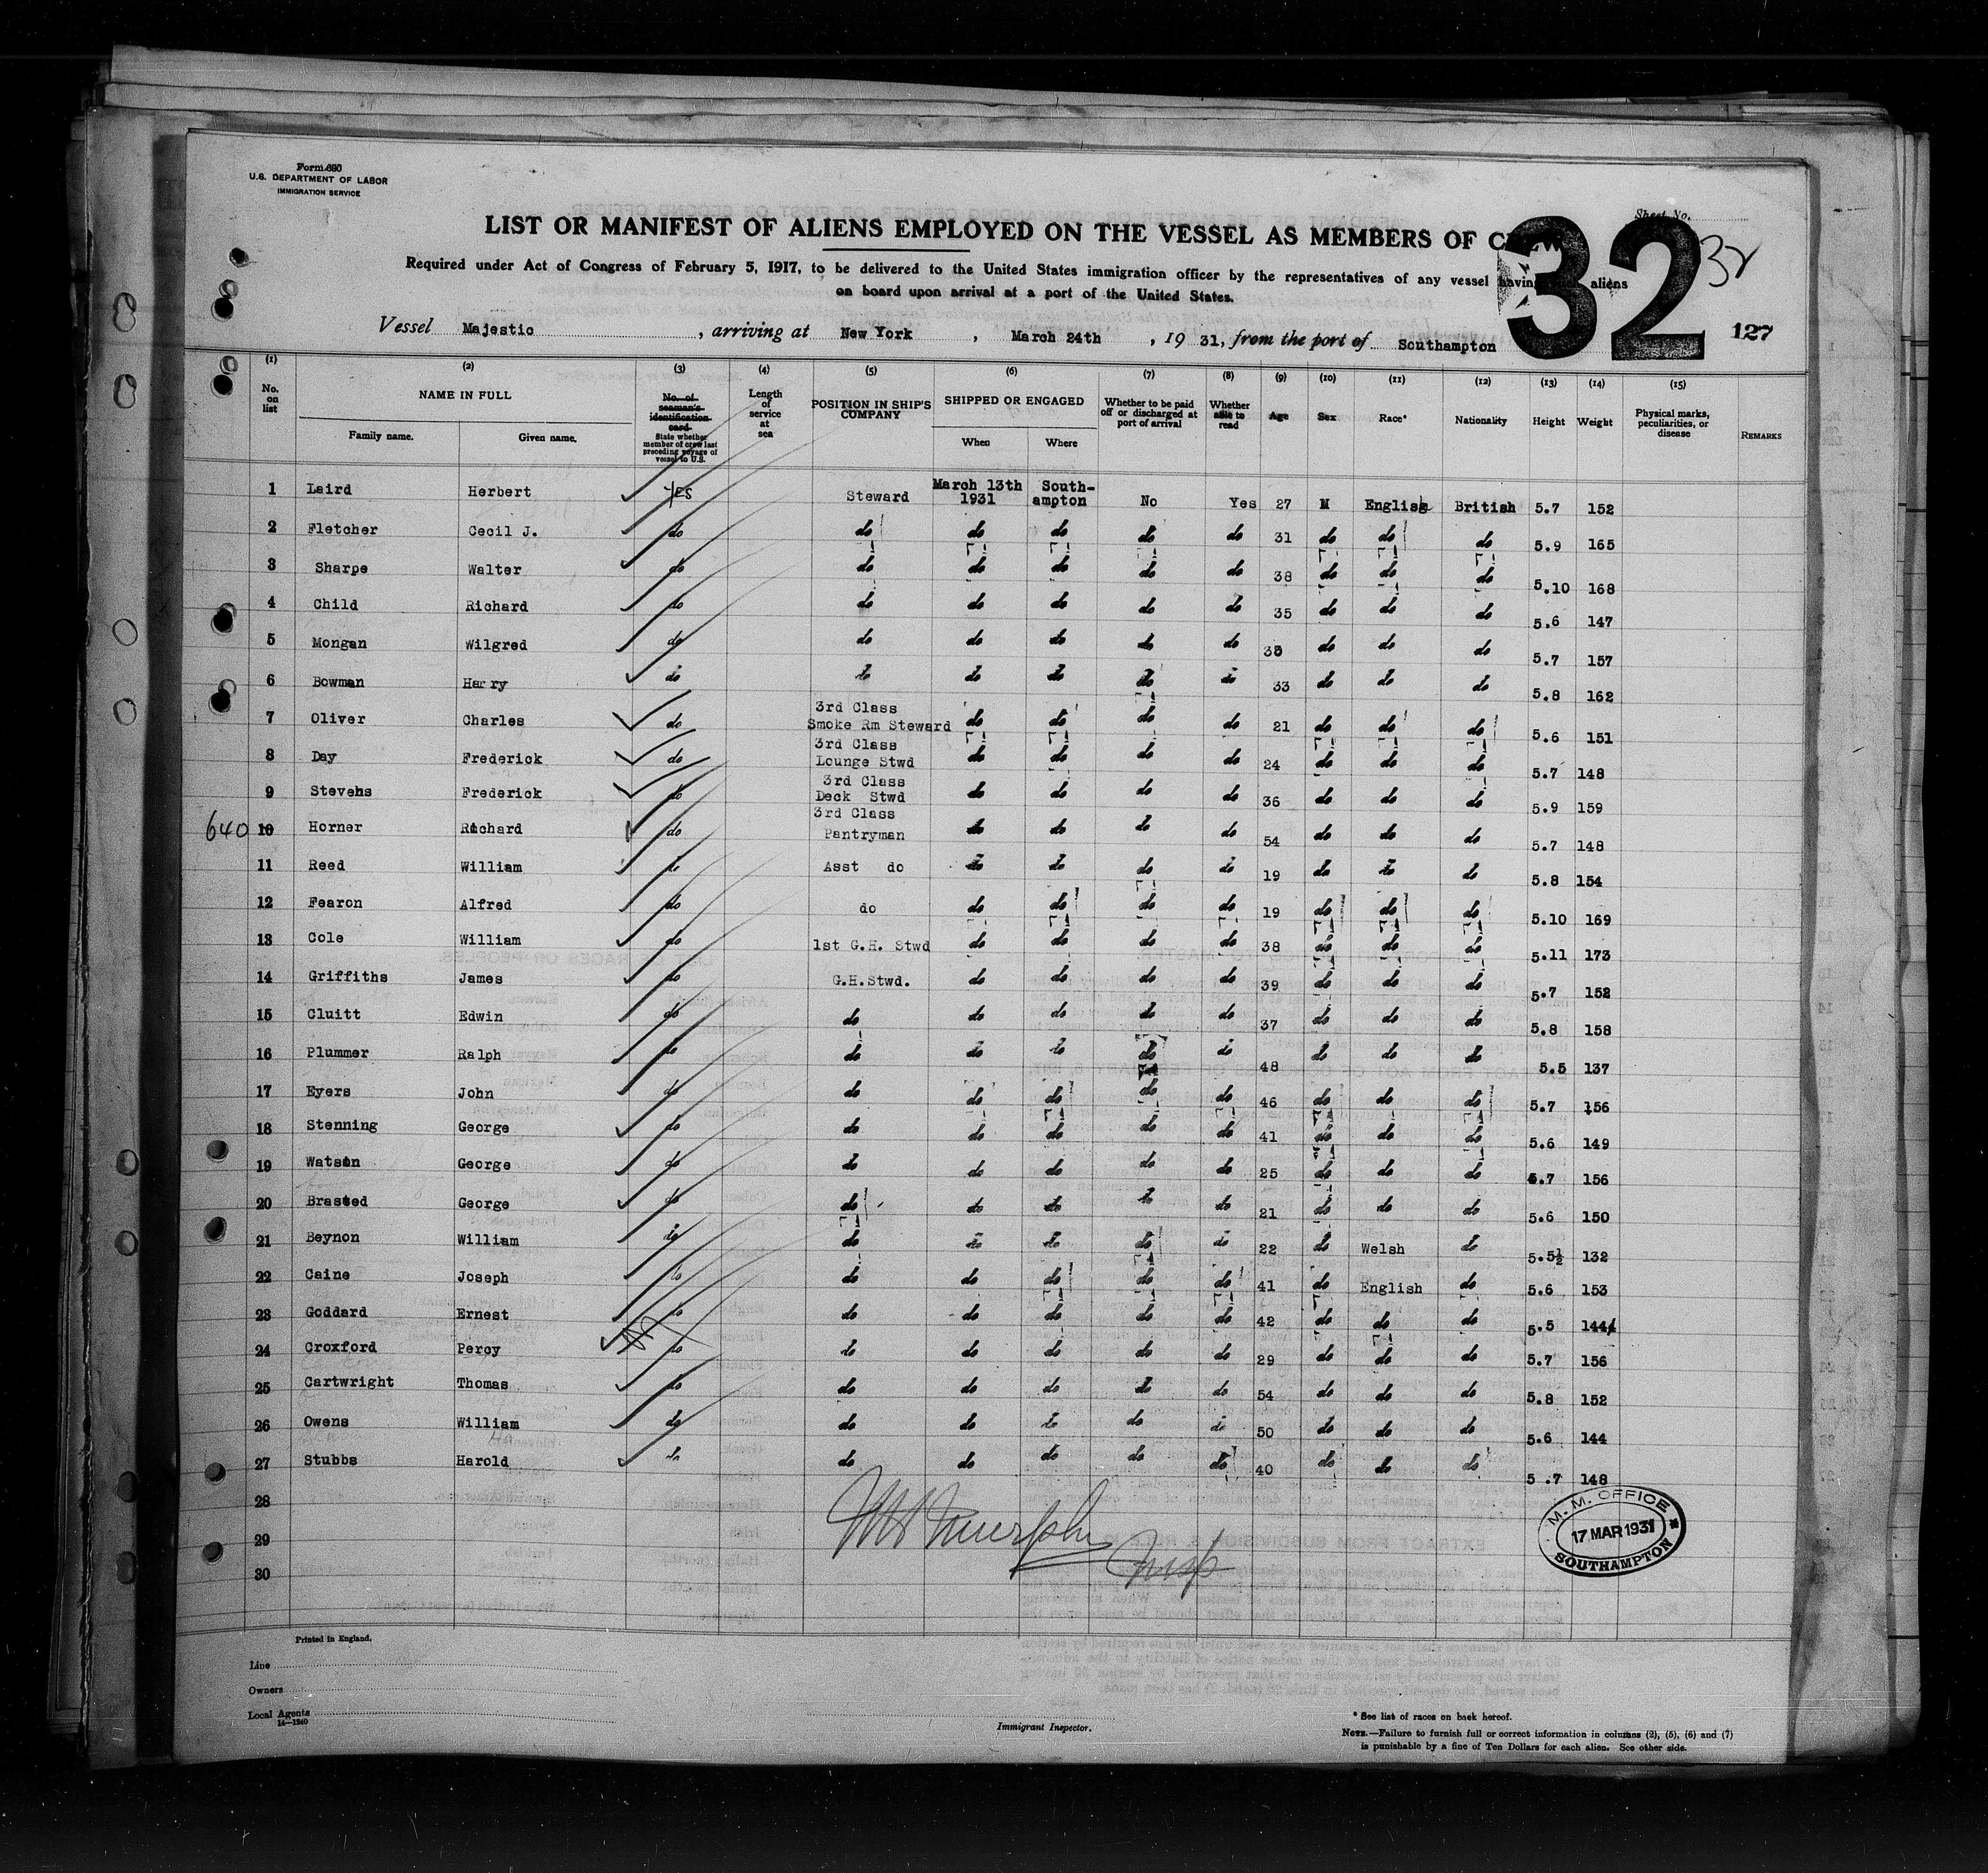 Form 680
U.S. DEPARTMENT OF LABOR
IMMIGRATION SERVICE
Sheet No.
LIST OR MANIFEST OF ALIENS EMPLOYED ON THE VESSEL AS MEMBERS OF CREW
32 32
Required under Act of Congress of February 5, 1917, to be delivered to the United States immigration officer by the representatives of any vessel having aliens
on board upon arrival at a port of the United States.
Vessel Majestic, arriving at New York, March 24th, 19 31, from the port of Southampton 127
(1) (2) (3) (4) (5) (6) (7) (8) (9) (10) (11) (12) (13) (14) (15)
No. on list NAME IN FULL Family name. Given name. No. of seaman's identification card State whether member of crew last preceding voyage of vessel to U.S. Length of service at sea POSITION IN SHIP'S COMPANY SHIPPED OR ENGAGED When Where Whether to be paid off or discharged at port of arrival Whether able to read Age Sex Race* Nationality Height Weight Physical marks, peculiarities, or disease REMARKS
1 Laird Herbert yes Steward March 13th 1931 South-ampton No Yes 27 M English British 5.7 152
2 Fletcher Cecil J. do do do do do do 31 do do do 5.9 165
3 Sharpe Walter do do do do do do 38 do do do 5.10 168
4 Child Richard do do do do do do 35 do do do 5.6 147
5 Mongan Wilgred do do do do do do do do do 5.7 157
6 Bowman Harry do do do do do do 33 do do do 5.8 162
7 Oliver Charles do 3rd Class Smoke Rm Steward do do do do 21 do do do 5.6 151
8 Day Frederick do 3rd Class Lounge Stwd do do do do 24 do do do 5.7 148
9 Stevens Frederick do 3rd Class Deck Stwd do do do do 36 do do do 5.9 159
640 10 Horner Richard do 3rd Class Pantryman do do do do 54 do do do 5.7 148
11 Reed William do Asst do do do do do 19 do do do 5.8 154
12 Fearon Alfred do do do do do do 19 do do do 5.10 169
13 Cole William do 1st G.H. Stwd do do do do 38 do do do 5.11 173
14 Griffiths James do G.H.Stwd. do do do do 39 do do do 5.7 152
15 Cluitt Edwin do do do do do do 37 do do do 5.8 158
16 Plummer Ralph do do do do do do 48 do do do 5.5 137
17 Eyers John do do do do do do 46 do do do 5.7 156
18 Stenning George do do do do do do 41 do do do 5.6 149
19 Watson George do do do do do do 25 do do do 5.7 156
20 Brasted George do do do do do do 21 do do do 5.6 150
21 Beynon William do do do do do do 22 do Welsh do 5.5½ 132
22 Caine Joseph do do do do do do 41 do English do 5.6 153
23 Goddard Ernest do do do do do do 42 do do do 5.5 144
24 Croxford Percy do do do do do do 29 do do do 5.7 156
25 Cartwright Thomas do do do do do do 54 do do do 5.8 152
26 Owens William do do do do do do 50 do do do 5.6 144
27 Stubbs Harold do do do do do do 40 do do do 5.7 148
28
29
30
Murphy
Insp
M. M. OFFICE
17 MAR 1931
SOUTHAMPTON
Printed in England.
Line
Owners
Local Agents
14—1240
Immigrant Inspector.
* See list of races on back hereof.
NOTE.—Failure to furnish full or correct information in columns (2), (5), (6) and (7)
is punishable by a fine of Ten Dollars for each alien. See other side.